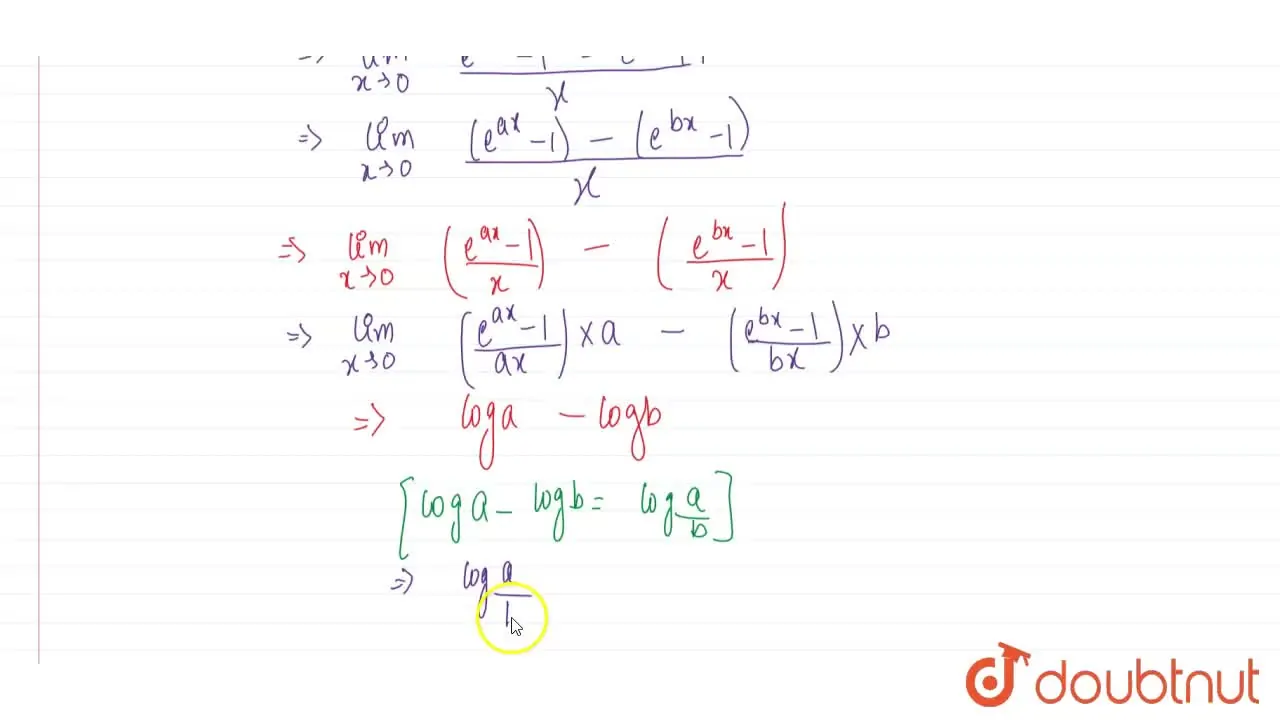 => lim x→0 e -1 - e +1 / x
=> lim x→0 (e^ax -1) - (e^bx -1) / x
=> lim x→0 (e^ax -1 / x) - (e^bx -1 / x)
=> lim x→0 (e^ax -1 / ax) × a - (e^bx -1 / bx) × b
=> log a - log b
[log a - log b = log a/b]
=> log a/
doubtnut